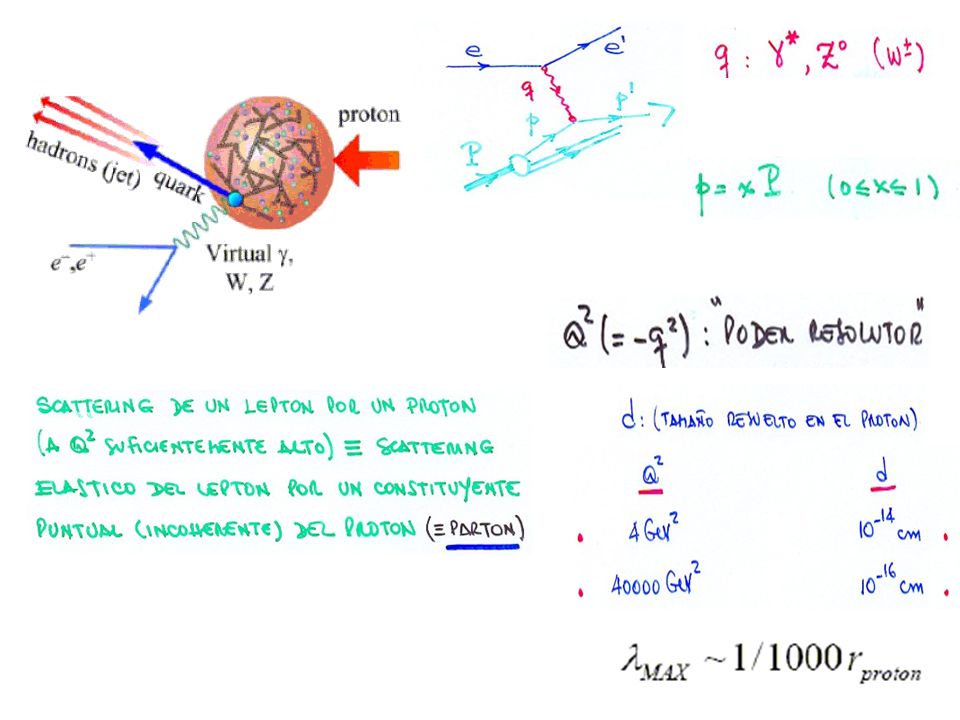 e e'
q : γ*, Z⁰ (W±)
q
p p'
P
proton
hadrons (jet) quark
p = x P (0 ≤ x ≤ 1)
Virtual γ,
W, Z
e⁻,e⁺
Q² (= -q²) : "PODER RESOLUTOR"
SCATTERING DE UN LEPTON POR UN PROTON
(A Q² SUFICIENTEMENTE ALTO) ≡ SCATTERING
ELASTICO DEL LEPTON POR UN CONSTITUYENTE
PUNTUAL (INCOHERENTE) DEL PROTON (≡ PARTON)
d : (TAMAÑO RESUELTO EN EL PROTON)
Q² d
4 GeV² 10⁻¹⁴ cm
40000 GeV² 10⁻¹⁶ cm
λ_MAX ~ 1/1000 r_proton